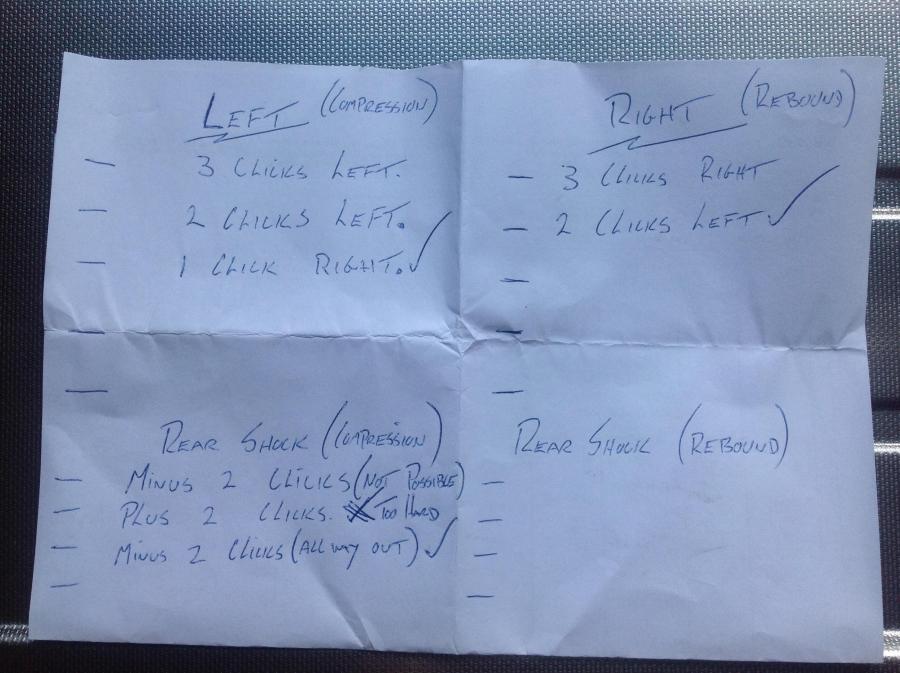 LEFT (COMPRESSION)
— 3 CLICKS LEFT.
— 2 CLICKS LEFT.
— 1 CLICK RIGHT. ✓
RIGHT (REBOUND)
— 3 CLICKS RIGHT
— 2 CLICKS LEFT ✓
REAR SHOCK (COMPRESSION)
— MINUS 2 CLICKS (NOT POSSIBLE)
— PLUS 2 CLICKS. TOO HARD
— MINUS 2 CLICKS (ALL WAY OUT) ✓
REAR SHOCK (REBOUND)